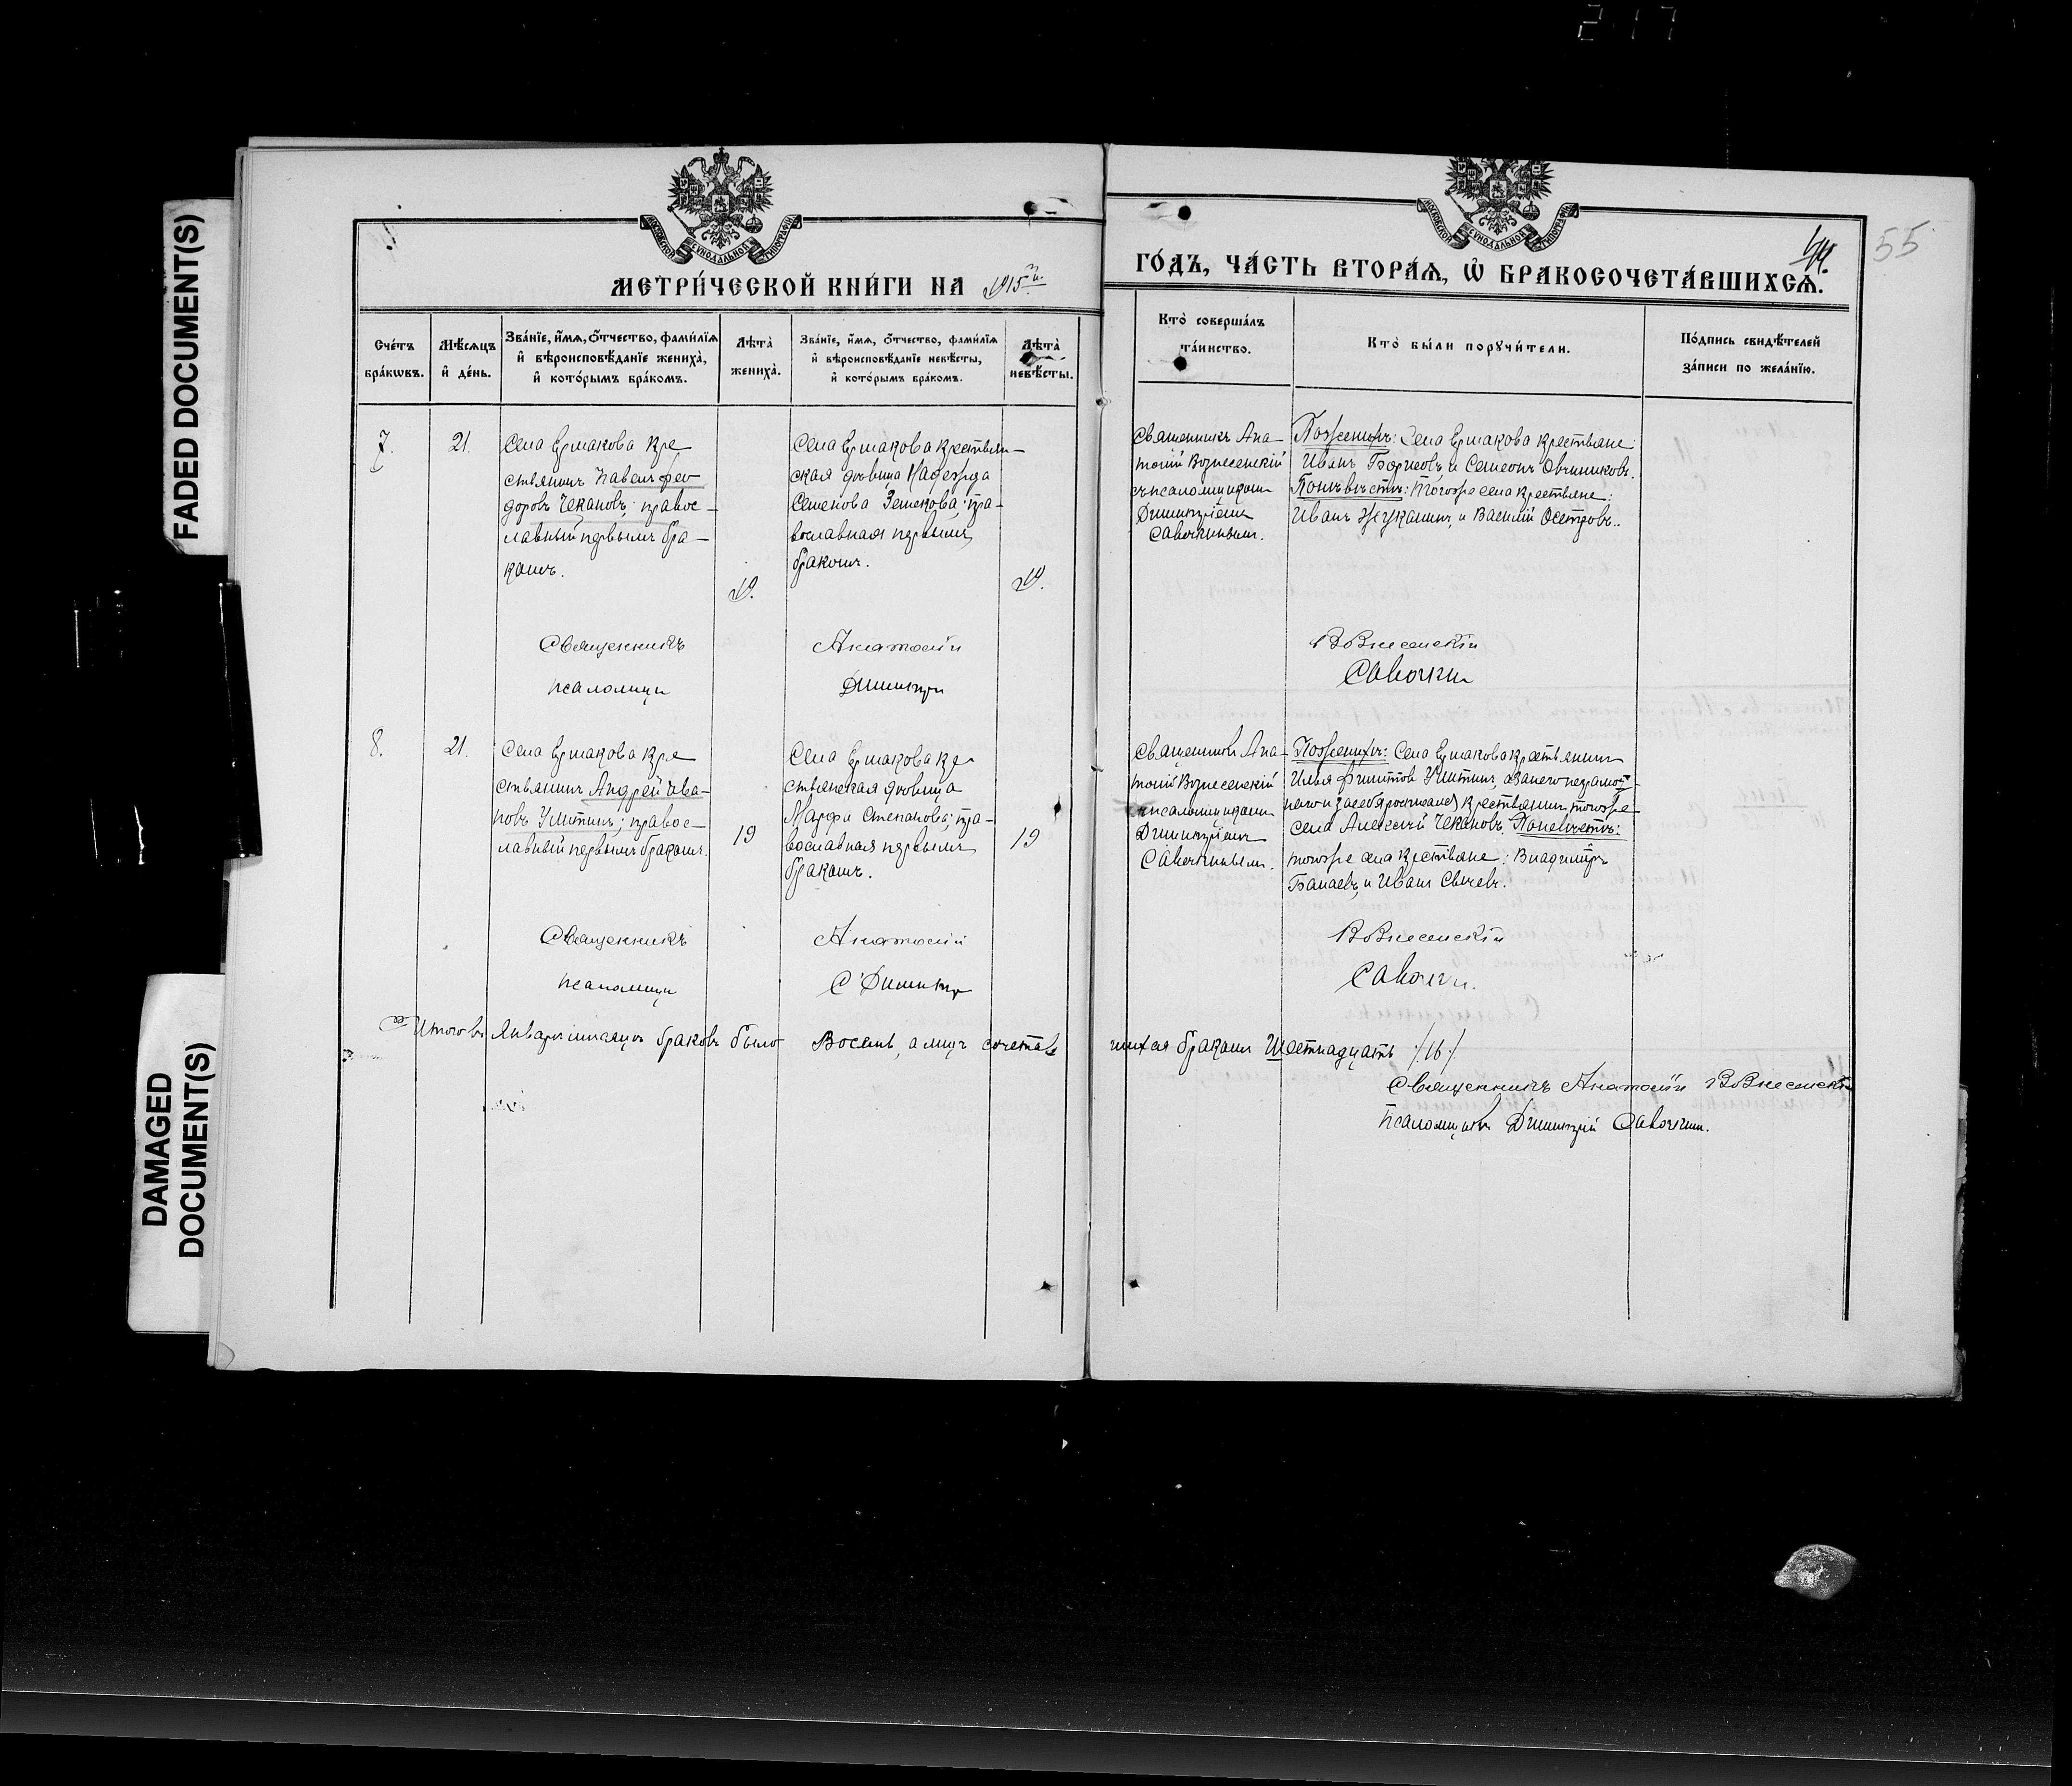 217
FADED DOCUMENT(S)
DAMAGED
DOCUMENT(S)
МЕТРИ́ЧЕСКОЙ КНИ́ГИ НА 1915й
ГО́ДЪ, ЧА́СТЬ ВТОРА́Я, Ѡ҆ БРАКОСОЧЕТА́ВШИХСЯ.
44. 55
Сче́тъ
бра́кѡвъ.
Мѣ́сяцъ
и҆ де́нь.
Зва́нїе, и҆́мя, ѻ҆́тчество, фами́лїя
и҆ вѣроисповѣ́данїе жениха̀,
и҆ кото́рымъ бра́комъ.
Лѣ́та̀
жениха̀.
Зва́нїе, и҆́мя, ѻ҆́тчество, фами́лїя
и҆ вѣроисповѣ́данїе невѣ́сты,
и҆ кото́рымъ бра́комъ.
Лѣ́та̀
невѣ́сты.
Кто̀ соверша́лъ
та́инство.
Кто̀ бы́ли порꙋчи́тели.
По́дпись свидѣ́телей
за́писи по жела́нїю.
7.
21.
Села Ермакова кре
стьянинъ Павелъ Фео
доровъ Чекановъ; правос-
лавный первымъ бра-
комъ.
19.
Села Ермакова крестьян-
ская дѣвица Надежда
Семенова; пра-
вославная первымъ
бракомъ.
19.
Священникъ Ана-
толій Вознесенскій
съ псаломщикомъ
Димитріемъ
Савочкинымъ.
По женихѣ: Села Ермакова крестьяне:
Иванъ Борисовъ, и Семеонъ Овчинниковъ.
По невѣстѣ: того же села крестьяне:
Иванъ Жуканинъ, и Василій Осетровъ.
Священникъ Анатолій Вознесенскій
псаломщи Димитри Савочкин
8.
21.
Села Ермакова кре
стьянинъ Андрей Ива-
новъ Улитинъ; правос-
лавный первымъ бракомъ.
19
Села Ермакова кре
стьянская дѣвица
Марфа Степанова; пра-
вославная первымъ
бракомъ.
19
Священникъ Ана-
толій Вознесенскій
съ псаломщикомъ
Димитріемъ
Савочкинымъ.
По женихѣ: Села Ермакова крестьянинъ
Илья Филиппов Улитинъ, а за него неграмот-
наго и за себя росписался крестьянинъ того же
села Алексѣй Чекановъ, По невѣстѣ:
того же села крестьяне: Владиміръ
Банаевъ, и Иванъ Сычевъ.
Священникъ Анатолій Вознесенскій
псаломщи Димитр Савочки.
Итого въ Январѣ мѣсяцѣ браковъ было Восемь, а лицъ сочетав
шихся бракомъ Шестнадцать /16/
Священникъ Анатолій Вознесенскій
Псаломщикъ Димитрій Савочкин.